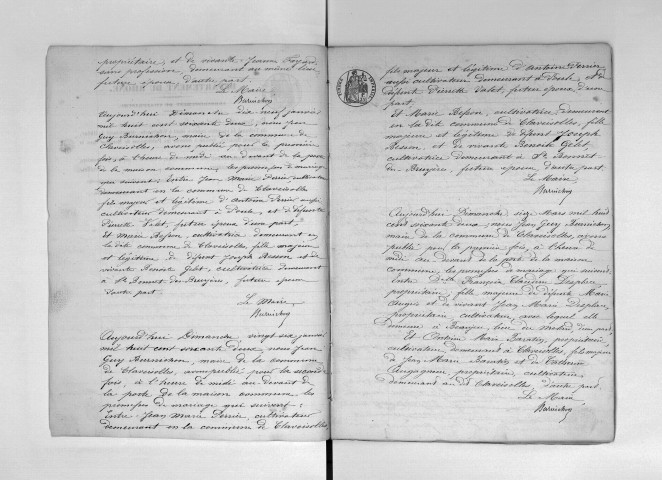 propriétaire, et de vivante Jeanne
sans profession, demeurant au même lieu
future épouse d'autre part.
Le Maire
Burnichon
Aujourd'hui Dimanche dix neuf janvier
mil huit cent soixante deux, nous Jean
Guy Burnichon, maire de la commune de
Claveisolles, avons publié pour la première
fois, à l'heure de midi au devant de la porte
de la maison commune, les promesses de mariage
qui suivent: Entre Jean Marie Perrier cultivateur
demeurant en la commune de Claveisolles
fils majeur et légitime d'Antoine Perrier aussi
cultivateur demeurant à Poule, et défunte
Pierrette Valet, futur époux d'une part
Et Marie Besson, cultivatrice, demeurant en
la dite commune de Claveisolles, fille majeure
et légitime de défunt Joseph Besson et de
vivante Benoite Gelet, cultivatrice demeurant
à St Bonnet des Bruyères, future épouse
d'autre part.
Le Maire
Burnichon
Aujourd'hui Dimanche, vingt six janvier
mil huit cent soixante deux, nous Jean
Guy Burnichon, maire de la commune
de Claveisolles, avons publié pour la seconde
fois, à l'heure de midi au devant de
la porte de la maison commune, les
promesses de mariage qui suivent:
Entre Jean Marie Perrier, cultivateur
demeurant en la commune de Claveisolles
fils majeur et légitime d'Antoine Perrier
aussi cultivateur demeurant à Poule, et de
défunte Pierrette Valet, futur époux d'une
part
Et Marie Besson, cultivatrice, demeurant
en la dite commune de Claveisolles, fille
majeure et légitime de défunt Joseph
Besson, et de vivante Benoite Gelet,
cultivatrice demeurant à St Bonnet
des Bruyères, future épouse d'autre part.
Le Maire
Burnichon
Aujourd'hui Dimanche six Mars mil huit
cent soixante deux, nous Jean Guy Burnichon
maire de la commune de Claveisolles, avons
publié pour la première fois, à l'heure de
midi au devant de la porte de la maison
commune, les promesses de mariage qui suivent
Entre Françoise Claudine Desplace
propriétaire, fille majeure de défunte Marie
et de vivant Jean Marie Desplace
propriétaire, cultivateur, avec lequel elle
demeure à Beaujeu, d'une part,
Et Antoine Marie Baratin, propriétaire,
cultivateur, demeurant à Claveisolles, fils majeur
de Jean Marie Baratin et de Catherine
propriétaire, cultivatrice,
demeurant au dit Claveisolles, d'autre part.
Le Maire
Burnichon